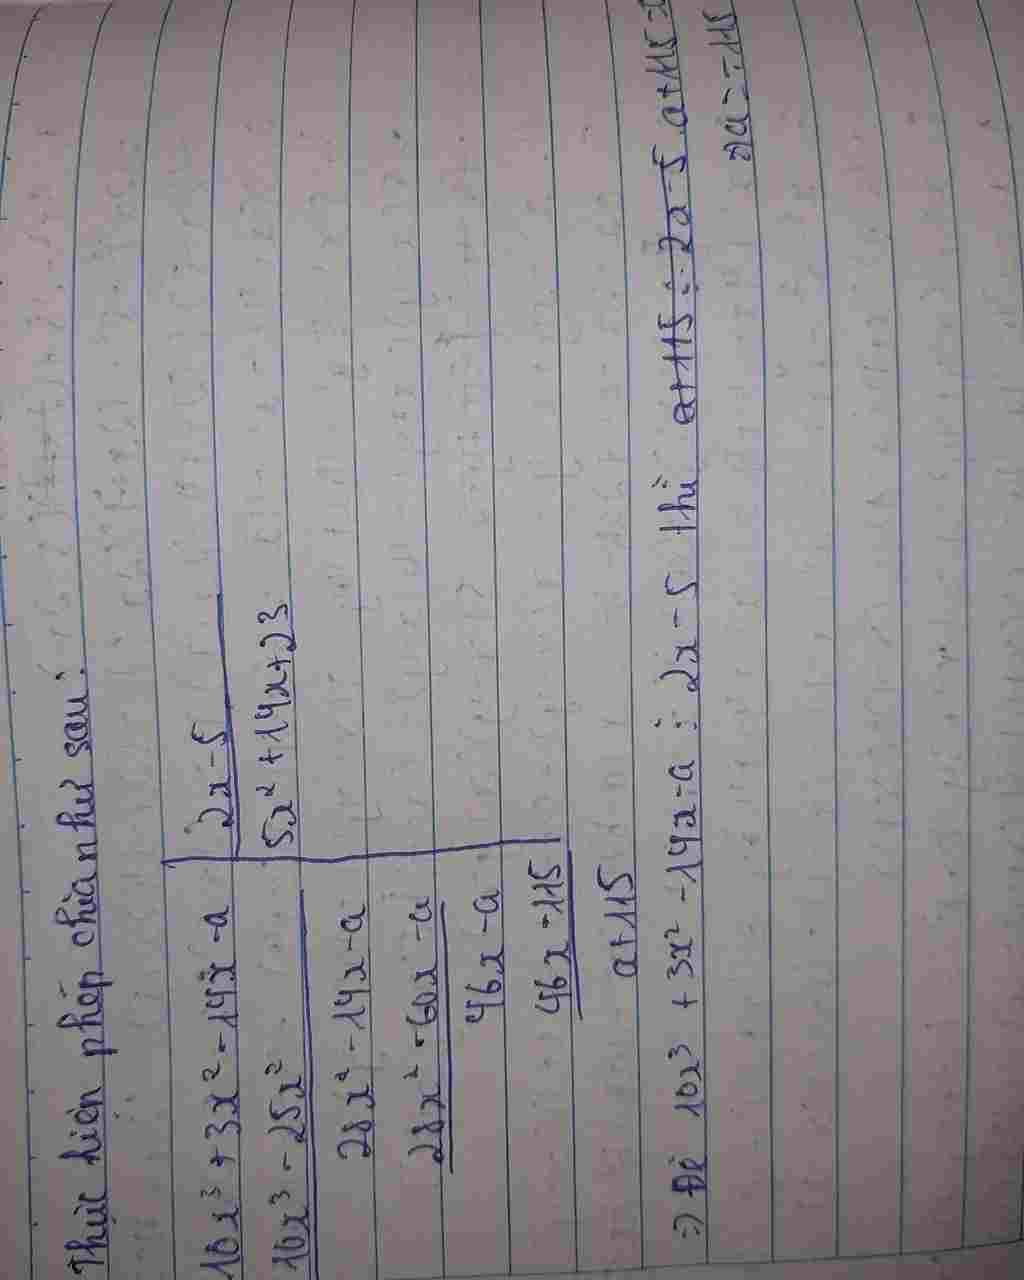 Thực hiện phép chia như sau:
10x³ + 3x² - 14x - a 2x - 5
10x³ - 25x² 5x² + 14x + 23
28x² - 14x - a
28x² - 60x - a
46x - a
46x - 115
a + 115
=) Để 10x³ + 3x² - 14x - a ⋮ 2x - 5 thì a + 115 =
=) a = -115